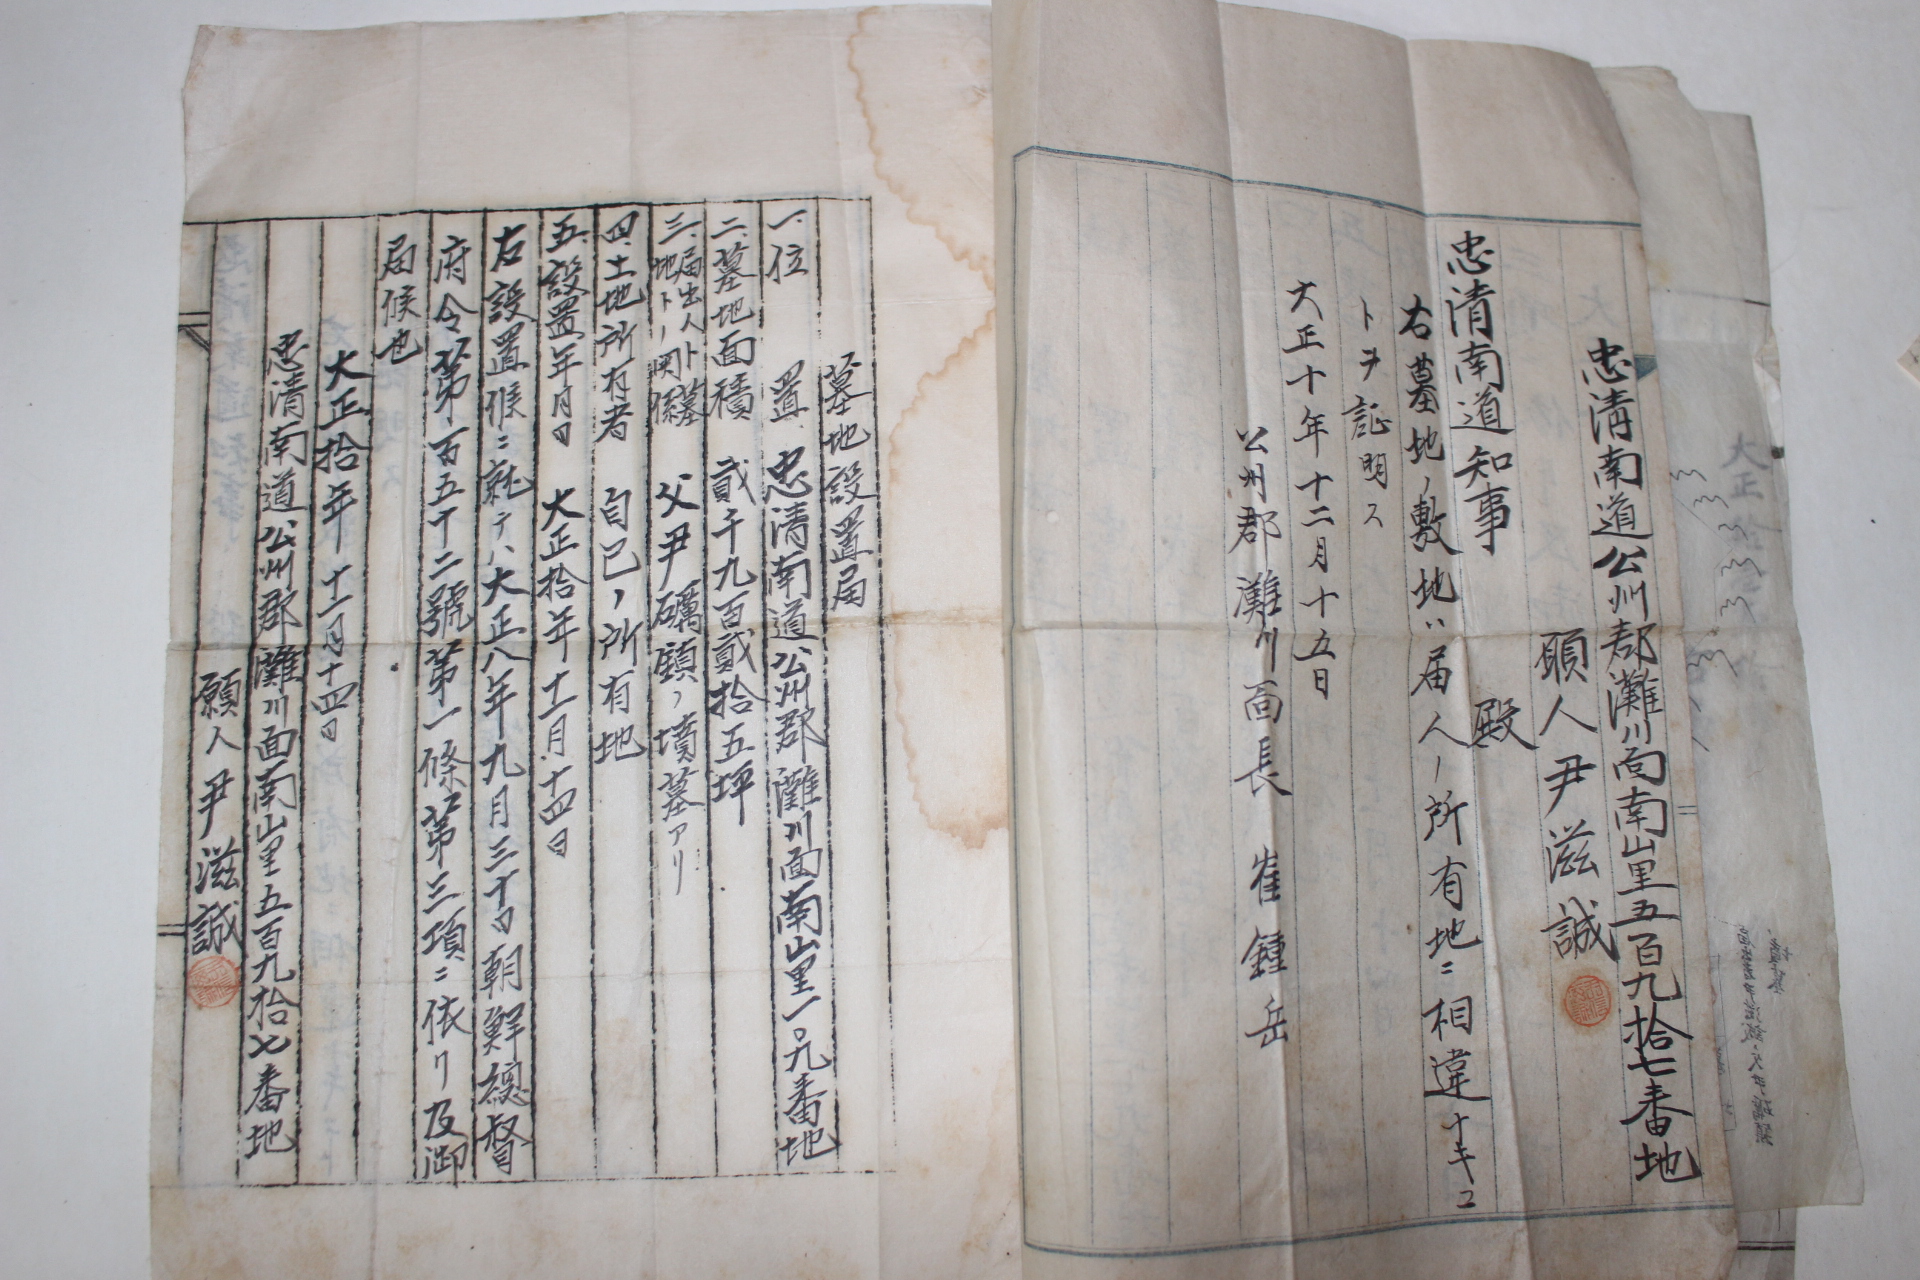 忠清南道公州郡灘川面南山里五百九拾七番地
願人尹滋誠
忠清南道知事 殿
右墓地ノ敷地ハ届人ノ所有地ニ相違ナキコ
トヲ証明ス
大正十年十二月十五日
公州郡灘川面長 崔鍾岳
墓地設置届
一、位置 忠清南道公州郡灘川面南山里一〇九番地
二、墓地面積 貳千九百貳拾五坪
三、届出人ト墓地トノ関係 父尹礪鎮ノ墳墓アリ
四、土地所有者 自己ノ所有地
五、設置年月日 大正拾年十一月十四日
右設置候ニ就テハ大正八年九月三十日朝鮮總督
府令第百五十二號第一條第三項ニ依リ及御
届候也
大正拾年十一月十四日
忠清南道公州郡灘川面南山里五百九拾七番地
願人尹滋誠